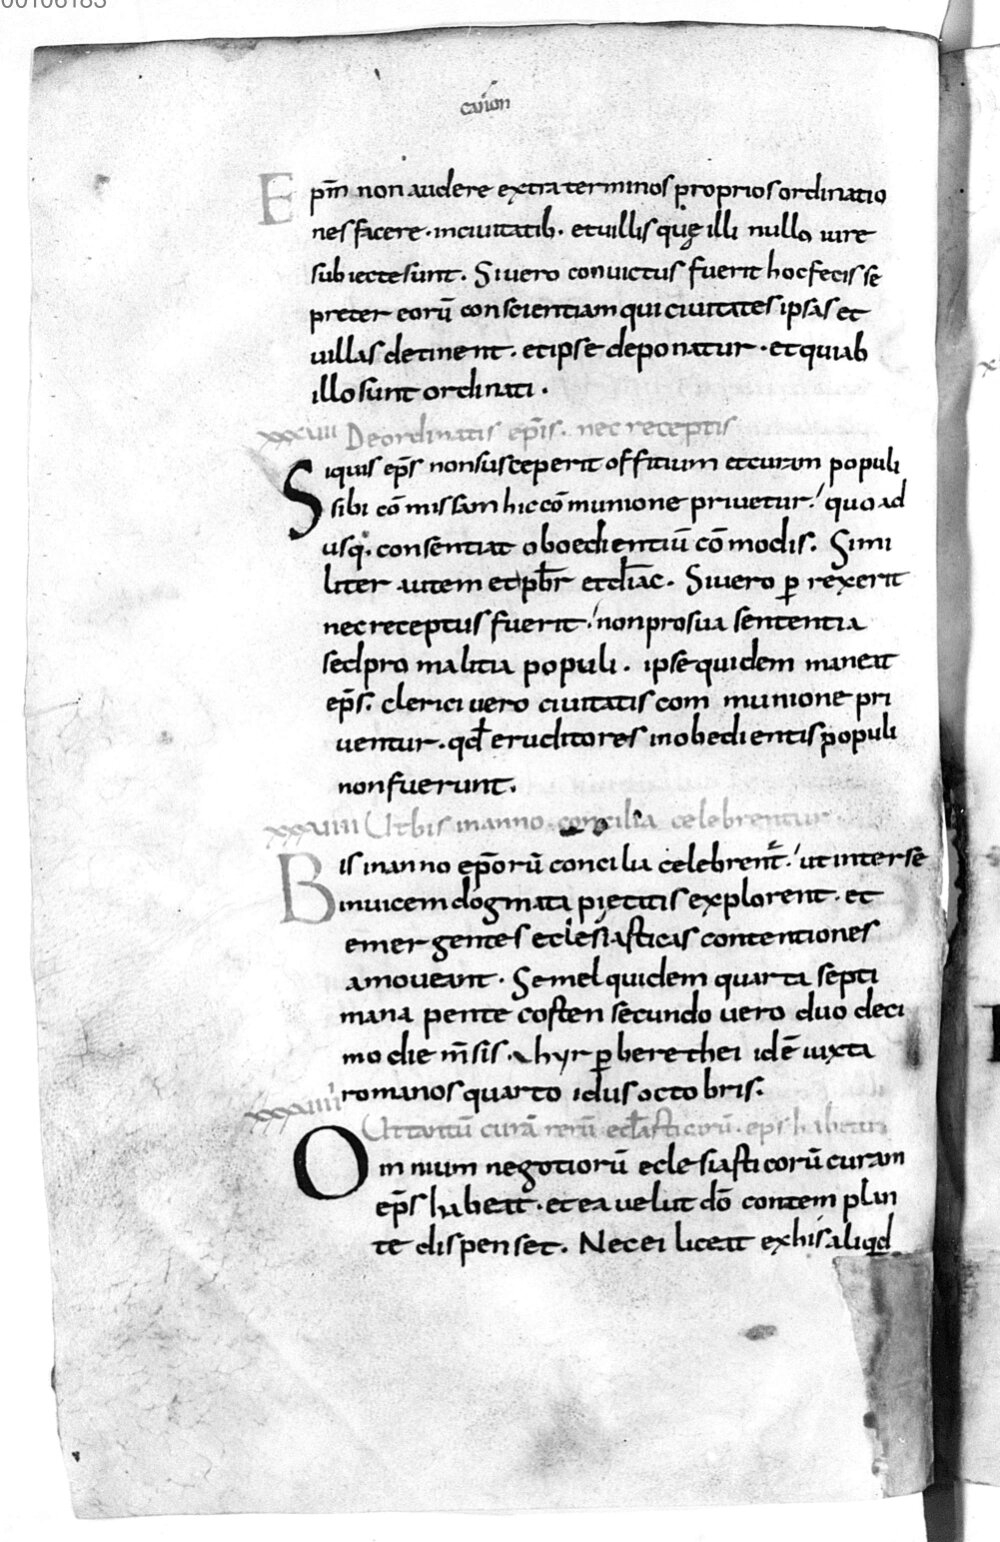 00106183
canon
Ep̄m non audere extra terminos proprios ordinatio
nes facere · in ciuitatib · et uillis quę illi nullo iure
subiecte sunt . Si uero conuictus fuerit hoc fecisse
preter eorū conscientiam qui ciuitates ipsas et
uillas detinent . et ipse deponatur · et qui ab
illo sunt ordinati .
xxxvııı De ordinatis ep̄is . nec receptis
Siquis ep̄s non susceperit offitium et curam populi
sibi cōmissam hic cōmunione priuetur ! quo ad
usq; consentiat oboedientiū cōmodis . Simi
liter autem et pb̄r et diāc . Si uero ꝑrexerit
nec receptus fuerit ! non pro sua sententia
sed pro malitia populi . ipse quidem maneat
ep̄s . clerici uero ciuitatis communione pri
uentur . qđ eruditores inobedientis populi
non fuerunt .
xxxvıııı Ut bis in anno concilia celebrentur
Bis in anno ep̄orū concilia celebrent̄ ! ut inter se
inuicem dogmata pietatis explorent · et
emergentes eclesiasticas contentiones
amoueant · Semel quidem quarta septi
mana pentecosten secundo uero duodeci
mo die m̄sis . hyꝑberethei idē iuxta
romanos quarto idus octobris .
Ut tantū curā rerū ecl̄asticarū . eps habeat
Omnium negotiorū eclesiasticorū curam
ep̄s habeat · et ea uelut dō contemplan
te dispenset . Nec ei liceat ex his aliqd